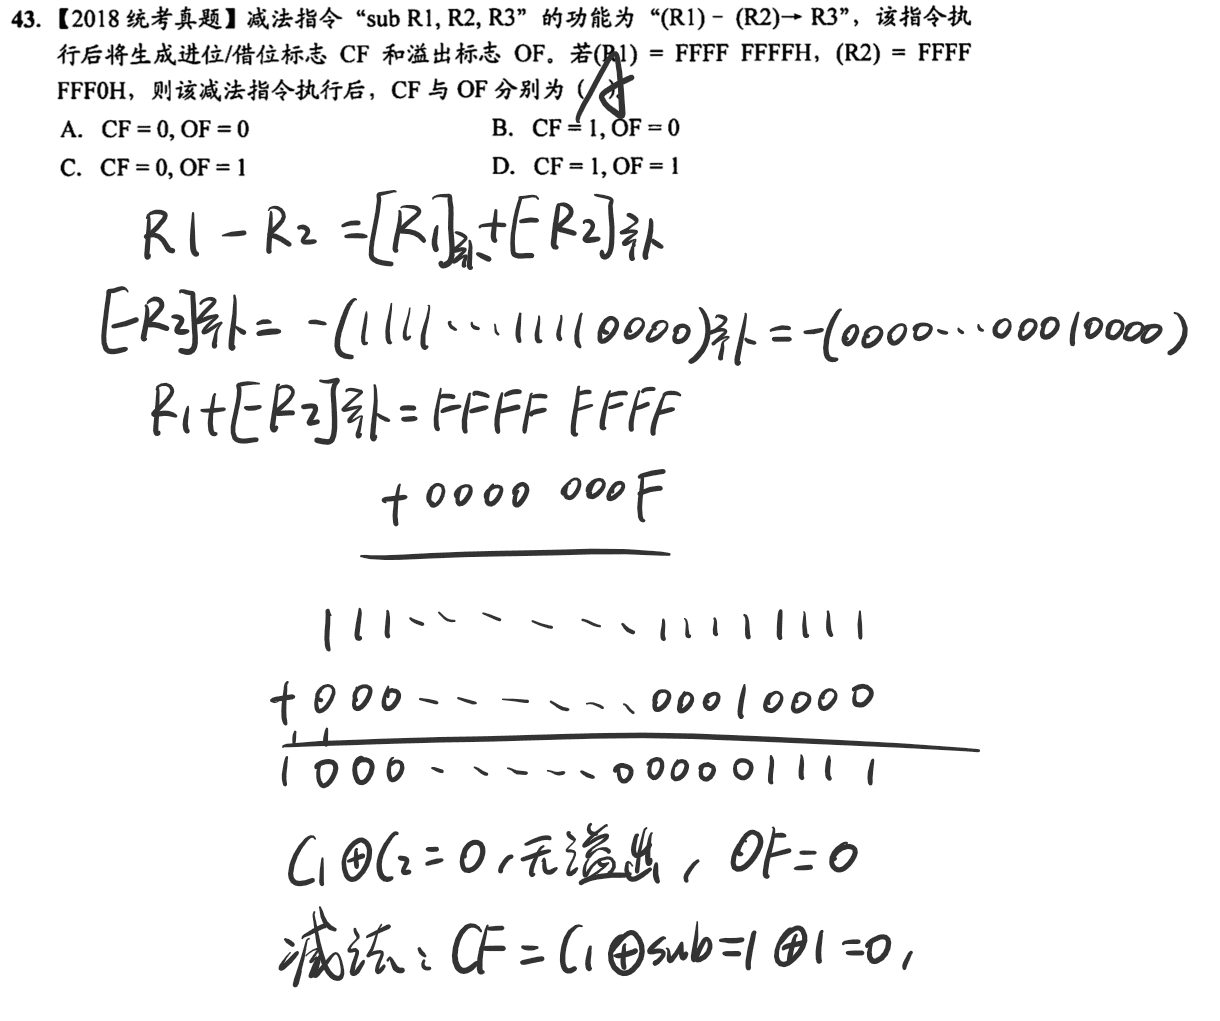 43.【2018 统考真题】减法指令 “sub R1, R2, R3” 的功能为 “(R1) - (R2)→ R3”，该指令执
行后将生成进位/借位标志 CF 和溢出标志 OF。若(R1) = FFFF FFFFH，(R2) = FFFF
FFF0H，则该减法指令执行后，CF 与 OF 分别为（ A ）。
A. CF = 0, OF = 0 B. CF = 1, OF = 0
C. CF = 0, OF = 1 D. CF = 1, OF = 1
R1 - R2 = [R1]补 + [-R2]补
[-R2]补 = -(1111···11110000)补 = -(0000···00010000)
R1+[-R2]补 = FFFF FFFF
+ 0000 000F
111······11111111
+ 000······00010000
1 1
1 000······000001111
C1⊕C2 = 0，无溢出，OF = 0
减法：CF = C1⊕sub = 1⊕1 = 0，